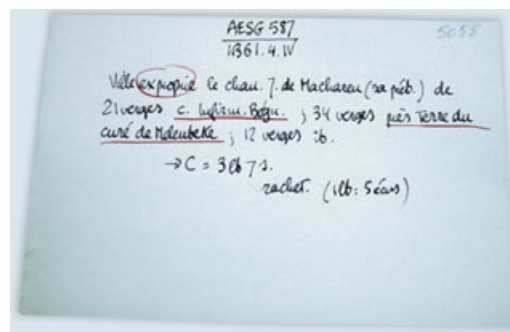 AESG 587
5055
1361.4.IV
Ville exproprie le chan. J. de Macharen (sa préb.) de
21 verges c. Infirm. Bégu. ; 34 verges près Terre du
curé de Meleubeke ; 12 verges ib.
→ C = 3 lb 7 s.
rachet. (1 lb : 5 écus)